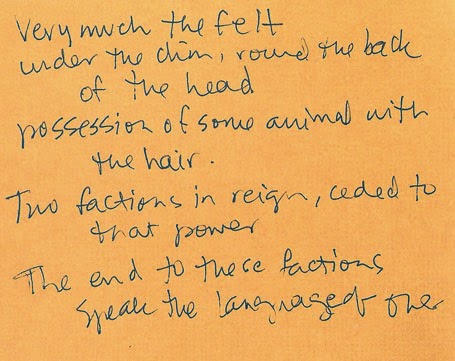 Very much the felt
under the chin, round the back
of the head
possession of some animal with
the hair.
Two factions in reign, ceded to
that power
The end to these factions
speak the language of one